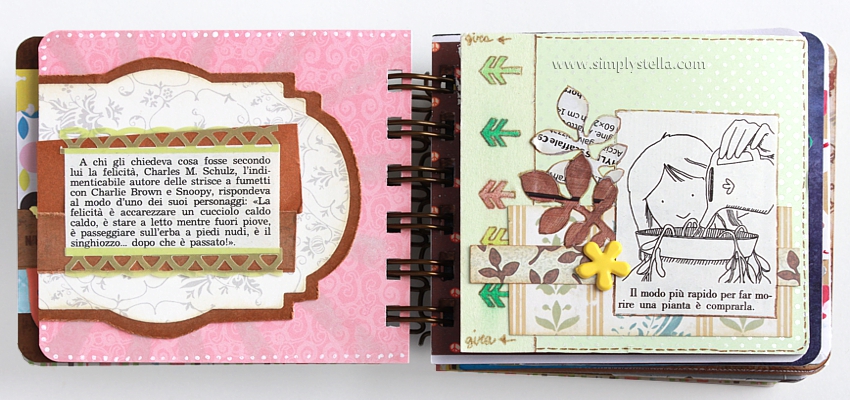 A chi gli chiedeva cosa fosse secondo
lui la felicità, Charles M. Schulz, l'indi-
menticabile autore delle strisce a fumetti
con Charlie Brown e Snoopy, rispondeva
al modo d'uno dei suoi personaggi: «La
felicità è accarezzare un cucciolo caldo
caldo, è stare a letto mentre fuori piove,
è passeggiare sull'erba a piedi nudi, è il
singhiozzo... dopo che è passato!».
gira
www.simplystella.com
60x2
h cm 1
Scaffale Cs
Il modo più rapido per far mo-
rire una pianta è comprarla.
gira